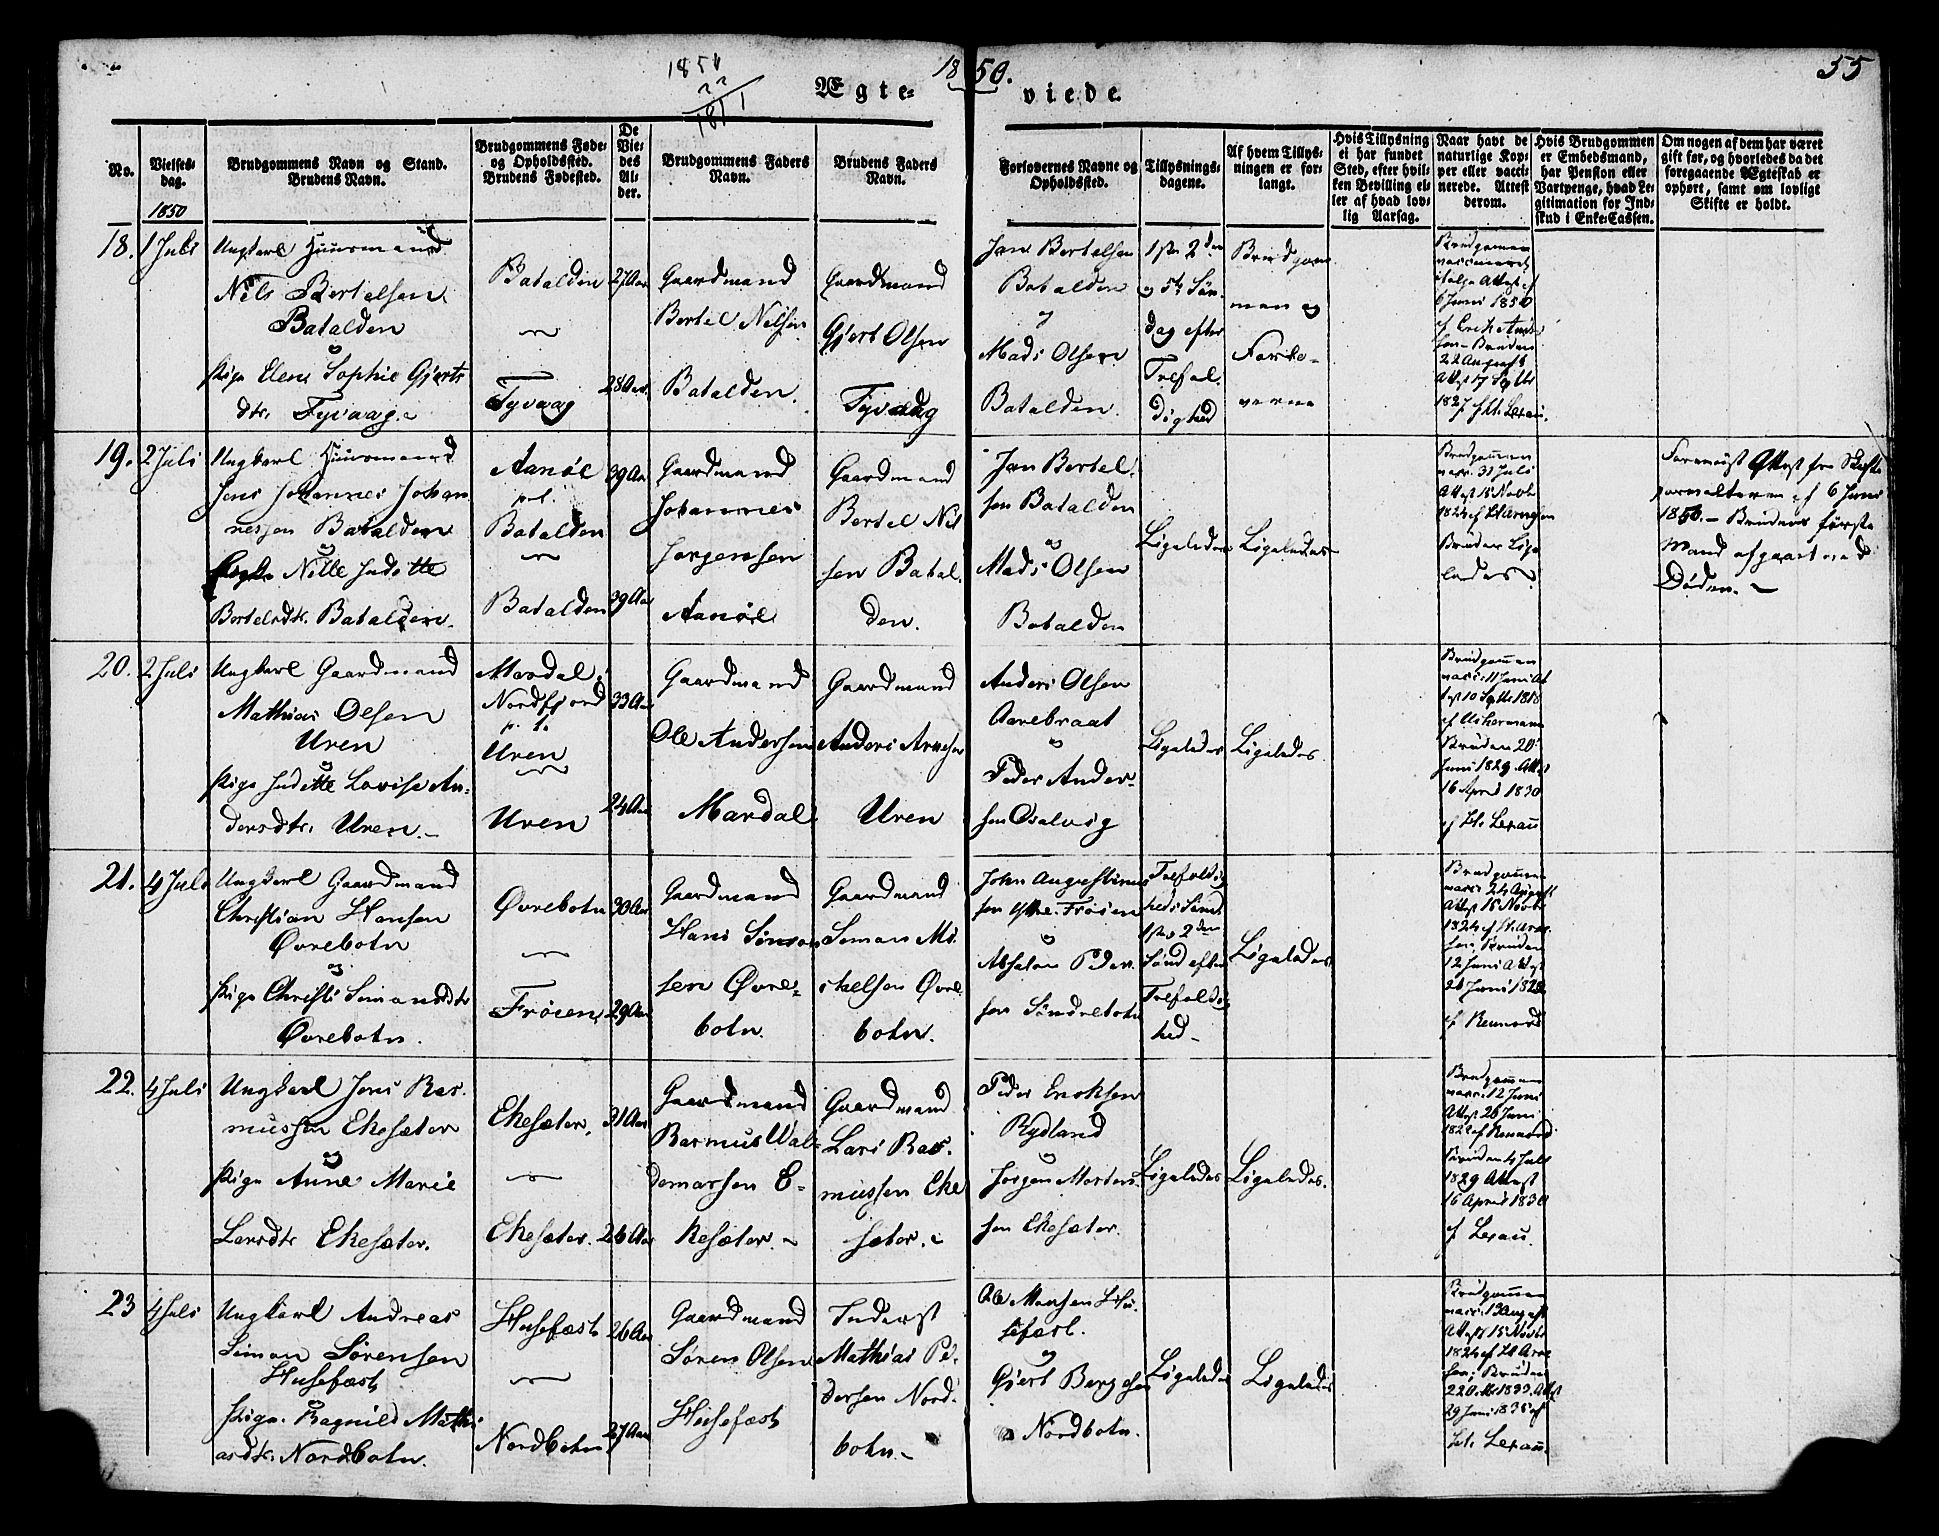 1850
22
1811
Ægte-
1850.
viede.
55
No.
Vielses-
dag.
Brudgommens Navn og Stand.
Brudens Navn.
Brudgommens Føde-
og Opholdssted.
Brudens Fødested.
De
Vie-
des
Al-
der.
Brudgommens Faders
Navn.
Brudens Faders
Navn.
Forlovernes Navne og
Opholdssted.
Tillysnings-
dagene.
Af hvem Tillys-
ningen er for-
langt.
Hvis Tillysning
ei har fundet
Sted, efter hvil-
ken Bevilling el-
ler af hvad lov-
lig Aarsag.
Naar havt de
naturlige Kop-
per eller vacci-
nerede. Attest
derom.
Hvis Brudgommen
er Embedsmand,
har Pension eller
Vartpenge, hvad Le-
gitimation for Ind-
skud i Enke-Cassen.
Om nogen af dem har været
gift før, og hvorledes da det
foregaaende Ægteskab er
ophørt, samt om lovligt
Skifte er holdt.
1850
18.
1 Juli
Ungkarl Huusmand
Nils Bertelsen
Batalden
og
Pige Elen Sophie Gjerts
dtr. Tyvaag.
Batalden
Tyvaag
27 Aar
28 Aar
Gaardmand
Bertel Nilsen
Batalden.
Gaardmand
Gjert Olsen
Tyvaag
Jan Bertelsen
Batalden
og
Mads Olsen
Batalden.
1ste 2den
og 5te Søn-
dag efter
Trefol-
dighed
Brudgom
men og
Forlo-
verne
Brudgommen
vaccineret
ifølge Attest af
6 Juni 1850
Bruden
22 August
Attest 17 Septbr
1827 af Lt. Lexau.
19.
2 Juli
Ungkarl Huusmand
Jens Johannes Johan
nessen Batalden
og
Enke Nille Juditte
Bertelsdtr. Batalden.
Aanøe
p.t.
Batalden
Batalden
39 Aar
39 Aar
Gaardmand
Johannes
Jørgensen
Aanøe
Gaardmand
Bertel Nil
sen Batal
den.
Jan Bertel
sen Batalden
og
Mads Olsen
Batalden
Ligeledes
Ligeledes
Brudgommen
vacc. 31 Juli
Attest 15 Novbr
1824 af Lt Arnesen
Bruden Lige
ledes
Foreviist Attest fra Skifte
forvalteren af 6 Juni
1850. - Brudens første
Mand afgaaet ved
Døden. -
20.
2 Juli
Ungkarl Gaardmand
Mathias Olsen
Uren
og
Pige Juditte Lovise An-
dersdtr. Uren. -
Mardal i
Nordfjord
p. t.
Uren
Uren
33 Aar
24 Aar
Gaardmand
Ole Andersen
Mardal
Gaardmand
Anders Arnesen
Uren
Anders Olsen
Aarebraat
og
Peder Ander-
sen Oselvig
Ligeledes
Ligeledes.
Brudgommen
vacc. 11 Juni At
test 10 Septbr 1818
af Askormann
Bruden 20
Juni 1829. Attest
16 April 1830
af Lt. Lexau
21.
4 Juli
Ungkarl Gaardmand
Christian Hansen
Øvrebotn
og
Pige Christi Simonsdtr
Øvrebotn.
Øvrebotn
Frøien
30 Aar
29 Aar
Gaardmand
Hans Simon
sen Øvre-
botn.
Gaardmand
Simon Mi
chelsen Øvre
botn.
John Augustinus
sen Ytre Frøien
og
Absalon Peder
sen Søndrebotn
Trefoldig
heds Sønd.
1ste 2den
Sønd efter
Trefoldig
hed -
Ligeledes
Brudgommen
vacc. 24 August
Attest 15 Novbr
1824 af Lt Arne
sen, Bruden
12 Juni Attest
26 Juni 1822
af Rennord
22.
4 Juli
Ungkarl Jens Ras-
mussen Ekesæter
og
Pige Anne Marie
Larsdtr Ekesæter.
Ekesæter.
Ekesæter.
31 Aar
26 Aar
Gaardmand
Rasmus Wal-
demarsen E-
kesæter. -
Gaardmand
Lars Ras-
mussen Eke
sæter. -
Peder Eriksen
Rydland
og
Jørgen Mortens-
sen Ekesæter.
Ligeledes
Ligeledes.
Brudgommen
vacc. 12 Juni
Attest 26 Juni
1822 af Rennord
Bruden 4 Juli
1829 Attest
16 April 1830
af Lexau.
23
4 Juli
Ungkarl Andreas
Simon Sørensen
Husefæst
og
Pige Ragnild Mathi
asdtr. Nordbotn.
Husefæst
Nordbotn
26 Aar
27 Aar
Gaardmand
Søren Olsen
Husefæst
Inderst
Mathias Pe-
dersen Nord-
botn. -
Ole Monsen Hu-
sefæst.
og
Gjert Bergesen
Nordbotn.
Ligeledes
Ligeledes
Brudgommen
vacc. 13 August
Attest 15 Novbr
1824 af Lt Arne
sen, Bruden
22 Okt. 1833. Attest
29 Juni 1835 af
Lt. Lexau.